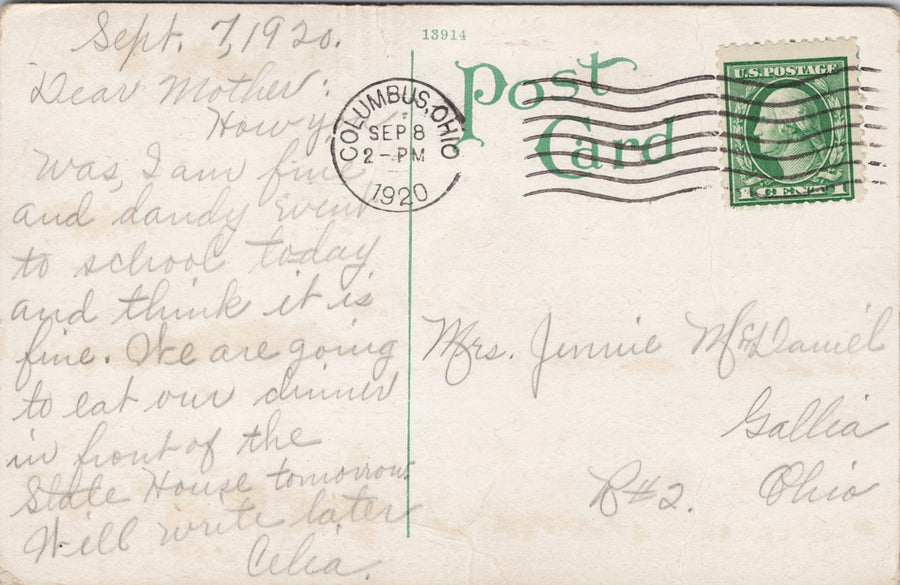 Sept. 7, 1920.
Dear Mother:
How
was, I am fine
and dandy went
to school today
and think it is
fine. We are going
to eat our dinner
in front of the
State House tomorrow.
Will write later
Celia.
13914
Post
Card
COLUMBUS, OHIO
SEP 8
2-PM
1920
U.S. POSTAGE
1 CENT 1
Mrs. Jennie McDaniel
Gallia
R#2. Ohio